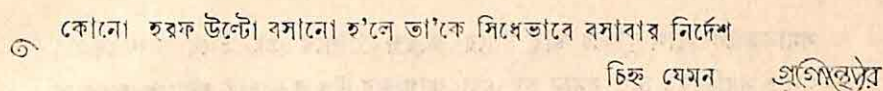 কোনো হরফ উল্টো বসানো হ'লে তা'কে সিধেভাবে বসাবার নির্দেশ
চিহ্ন যেমন